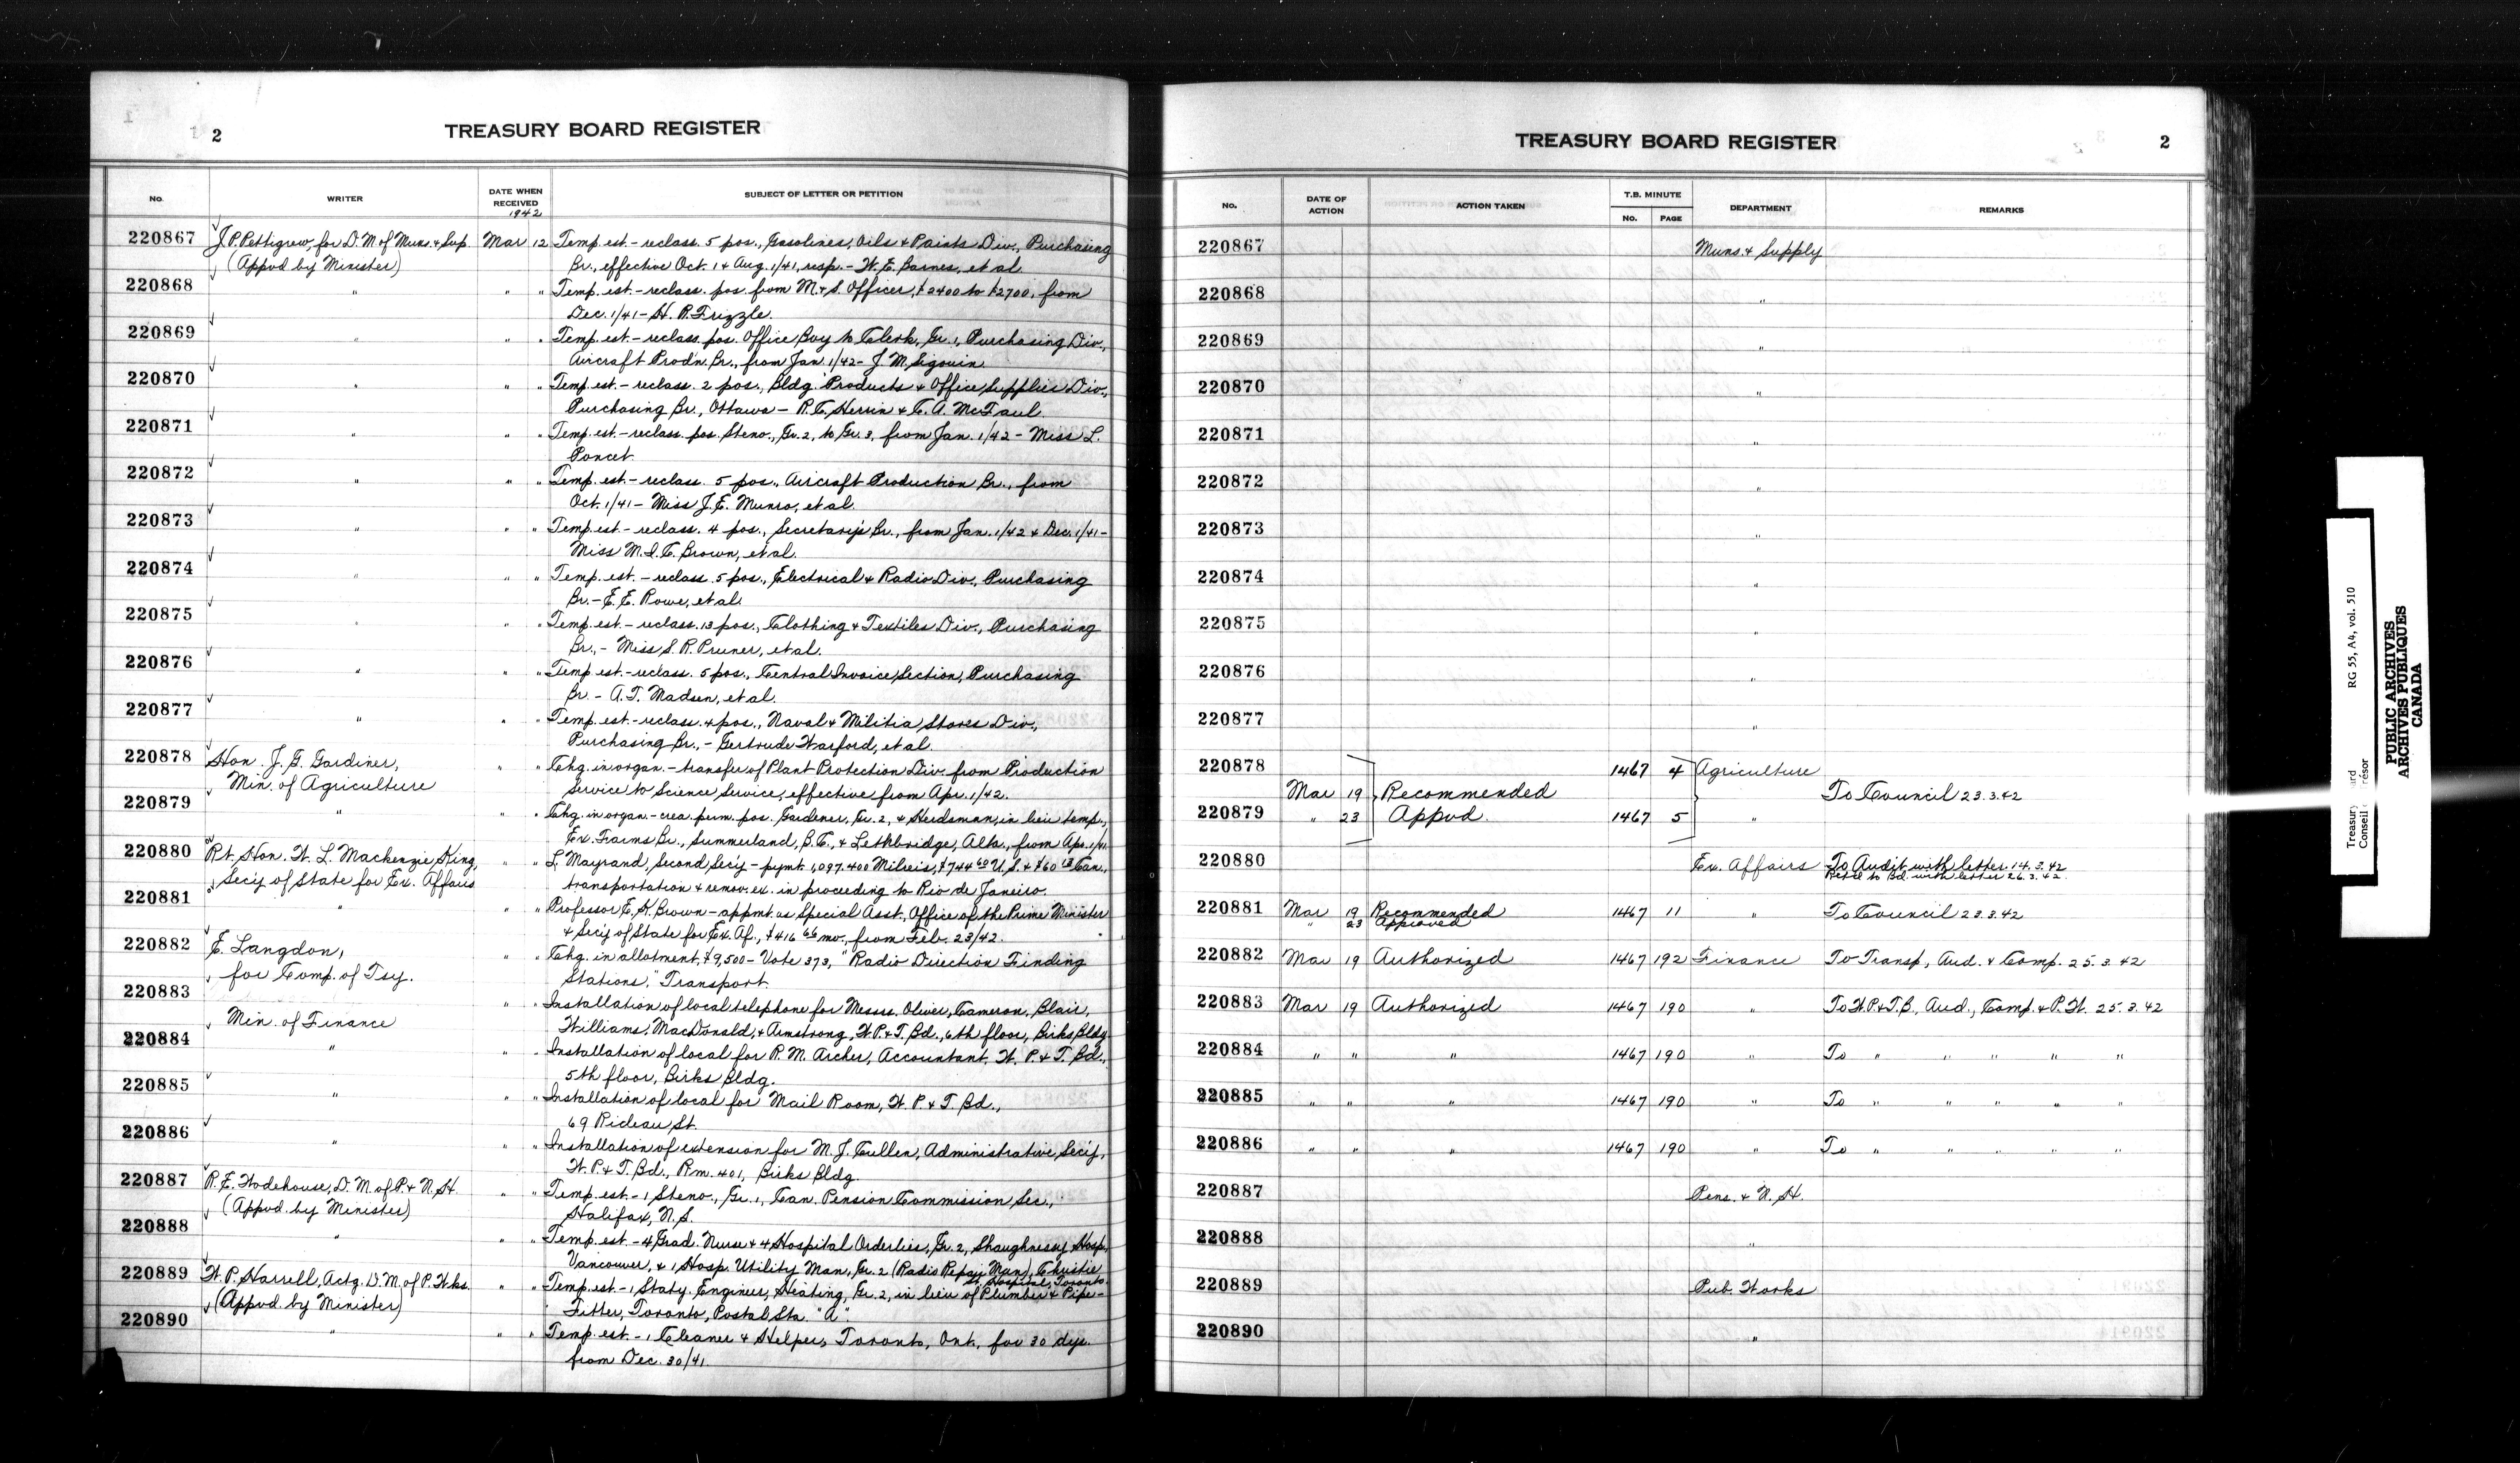 2
TREASURY BOARD REGISTER
No. WRITER DATE WHEN RECEIVED SUBJECT OF LETTER OR PETITION
1942
220867 J.P. Pettigrew, for D.M. of Muns. & Sup. Mar 12 Temp. est. - reclass. 5 pos., Gasolines, Oils & Paints Div., Purchasing
(Appvd by Minister) Br., effective Oct. 1 & Aug. 1/41, resp. - W.E. Barnes, et al.
220868 " " " Temp. est. - reclass. pos. from M. & S. Officer, $2400 to $2700, from
Dec. 1/41 - H.R. Frizzle.
220869 " " " Temp. est. - reclass. pos. Office Boy to Clerk, Gr. 1, Purchasing Div.,
Aircraft Prod'n. Br., from Jan. 1/42 - J.M. Sigouin
220870 " " " Temp. est. - reclass. 2 pos., Bldg. Products & Office Supplies Div.,
Purchasing Br., Ottawa - R.C. Herrin & C.A. McFaul.
220871 " " " Temp. est. - reclass. pos. Steno., Gr. 2, to Gr. 3, from Jan. 1/42 - Miss L.
Poncet.
220872 " " " Temp. est. - reclass. 5 pos., Aircraft Production Br., from
Oct. 1/41 - Miss J.E. Munro, et al.
220873 " " " Temp. est. - reclass. 4 pos., Secretary's Br., from Jan. 1/42 & Dec. 1/41 -
Miss M.I.C. Brown, et al.
220874 " " " Temp. est. - reclass. 5 pos., Electrical & Radio Div., Purchasing
Br. - E.E. Rowe, et al.
220875 " " " Temp. est. - reclass. 13 pos., Clothing & Textiles Div., Purchasing
Br., - Miss S.R. Pruner, et al.
220876 " " " Temp. est. - reclass. 5 pos., Central Invoice Section, Purchasing
Br. - A.T. Madsen, et al.
220877 " " " Temp. est. - reclass. 4 pos., Naval & Militia Stores Div.,
Purchasing Br., - Gertrude Warford, et al.
220878 Hon. J.G. Gardiner, " " Chg. in organ. - transfer of Plant Protection Div. from Production
Min. of Agriculture Service to Science Service, effective from Apr. 1/42.
220879 " " " Chg. in organ. - crea. perm. pos. Gardener, Gr. 2, & Herdsman, in lieu temp.,
Ex. Farms Br., Summerland, B.C., & Lethbridge, Alta., from Apr. 1/41
220880 Rt. Hon. W.L. Mackenzie King, " " L. Mayrand, Second Sec'y - pymt. 1,097.400 Milreis, $744.60 U.S. & $60.13 Can.,
Sec'y of State for Ex. Affairs transportation & remov. ex. in proceeding to Rio de Janeiro.
220881 " " " Professor E.K. Brown - appmt. as Special Asst., Office of the Prime Minister
& Sec'y of State for Ex. Af., $416.66 mo., from Feb. 23/42.
220882 C. Langdon, " Chg. in allotment, $9,500 - Vote 373, "Radio Direction Finding
for Comp. of Tsy. Stations," Transport.
220883 " " Installation of local telephone for Messrs. Oliver, Cameron, Blair,
Min. of Finance Williams, MacDonald, & Armstrong, W.P. & T. Bd., 6th floor, Birks Bldg.
220884 " " " Installation of local for R.M. Archer, Accountant, W.P. & T. Bd.,
5th floor, Birks Bldg.
220885 " " " Installation of local for Mail Room, W.P. & T. Bd.,
69 Rideau St.
220886 " " " Installation of extension for M.J. Cullen, Administrative Sec'y,
W.P. & T. Bd., Rm. 401, Birks Bldg.
220887 R.E. Wodehouse, D.M. of P. & N.H. " " Temp. est. - 1 Steno., Gr. 1, Can. Pension Commission Sec.,
(Appvd. by Minister) Halifax, N.S.
220888 " " " Temp. est. - 4 Grad. Nurse & 4 Hospital Orderlies, Gr. 2, Shaughnessy Hosp.,
Vancouver, & 1 Hosp. Utility Man, Gr. 2 (Radio Repair Man), Christie
St. Hospital, Toronto.
220889 W.P. Harrell, Actg. D.M. of P. Wks. " " Temp. est. - 1 Staty. Engineer, Heating, Gr. 2, in lieu of Plumber & Pipe-
(Appvd. by Minister) Fitter, Toronto, Postal Sta. "A".
220890 " " " Temp. est. - 1 Cleaner & Helper, Toronto, Ont., for 30 dys.
from Dec. 30/41.
TREASURY BOARD REGISTER
2
No. DATE OF ACTION ACTION TAKEN T.B. MINUTE No. PAGE DEPARTMENT REMARKS
220867 Muns. & Supply
220868 "
220869 "
220870 "
220871 "
220872 "
220873 "
220874 "
220875 "
220876 "
220877 "
220878 1467 4 Agriculture
Mar 19 Recommended To Council 23.3.42
220879 " 23 Appvd. 1467 5 "
220880 Ex. Affairs To Audit with letter 14.3.42
Ret'd to Bd. with letter 26.3.42
220881 Mar 19 Recommended 1467 11 " To Council 23.3.42
" 23 Approved
220882 Mar 19 Authorized 1467 192 Finance To Transp., Aud. & Comp. 25.3.42
220883 Mar 19 Authorized 1467 190 " To W.P. & T.B., Aud., Comp. & P.W. 25.3.42
220884 " " " 1467 190 " To " " " " "
220885 " " " 1467 190 " To " " " " "
220886 " " " 1467 190 " To " " " " "
220887 Pens. & N.H.
220888 "
220889 Pub. Works
220890 "
Treasury Board
Conseil Trésor
RG 55, A4, vol. 510
PUBLIC ARCHIVES
ARCHIVES PUBLIQUES
CANADA